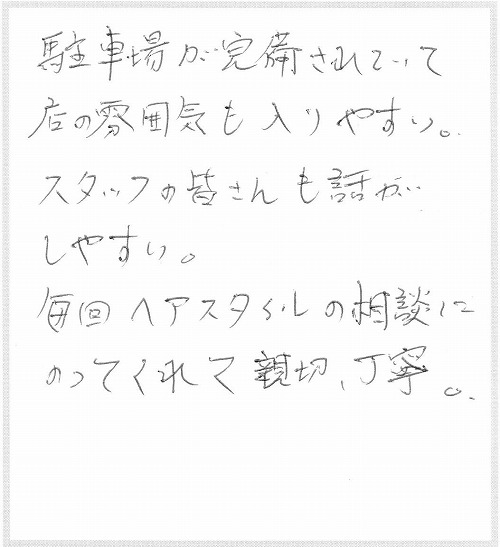 駐車場が完備されていて
店の雰囲気も入りやすい。
スタッフの皆さんも話が
しやすい。
毎回ヘアスタイルの相談に
のってくれて親切、丁寧。